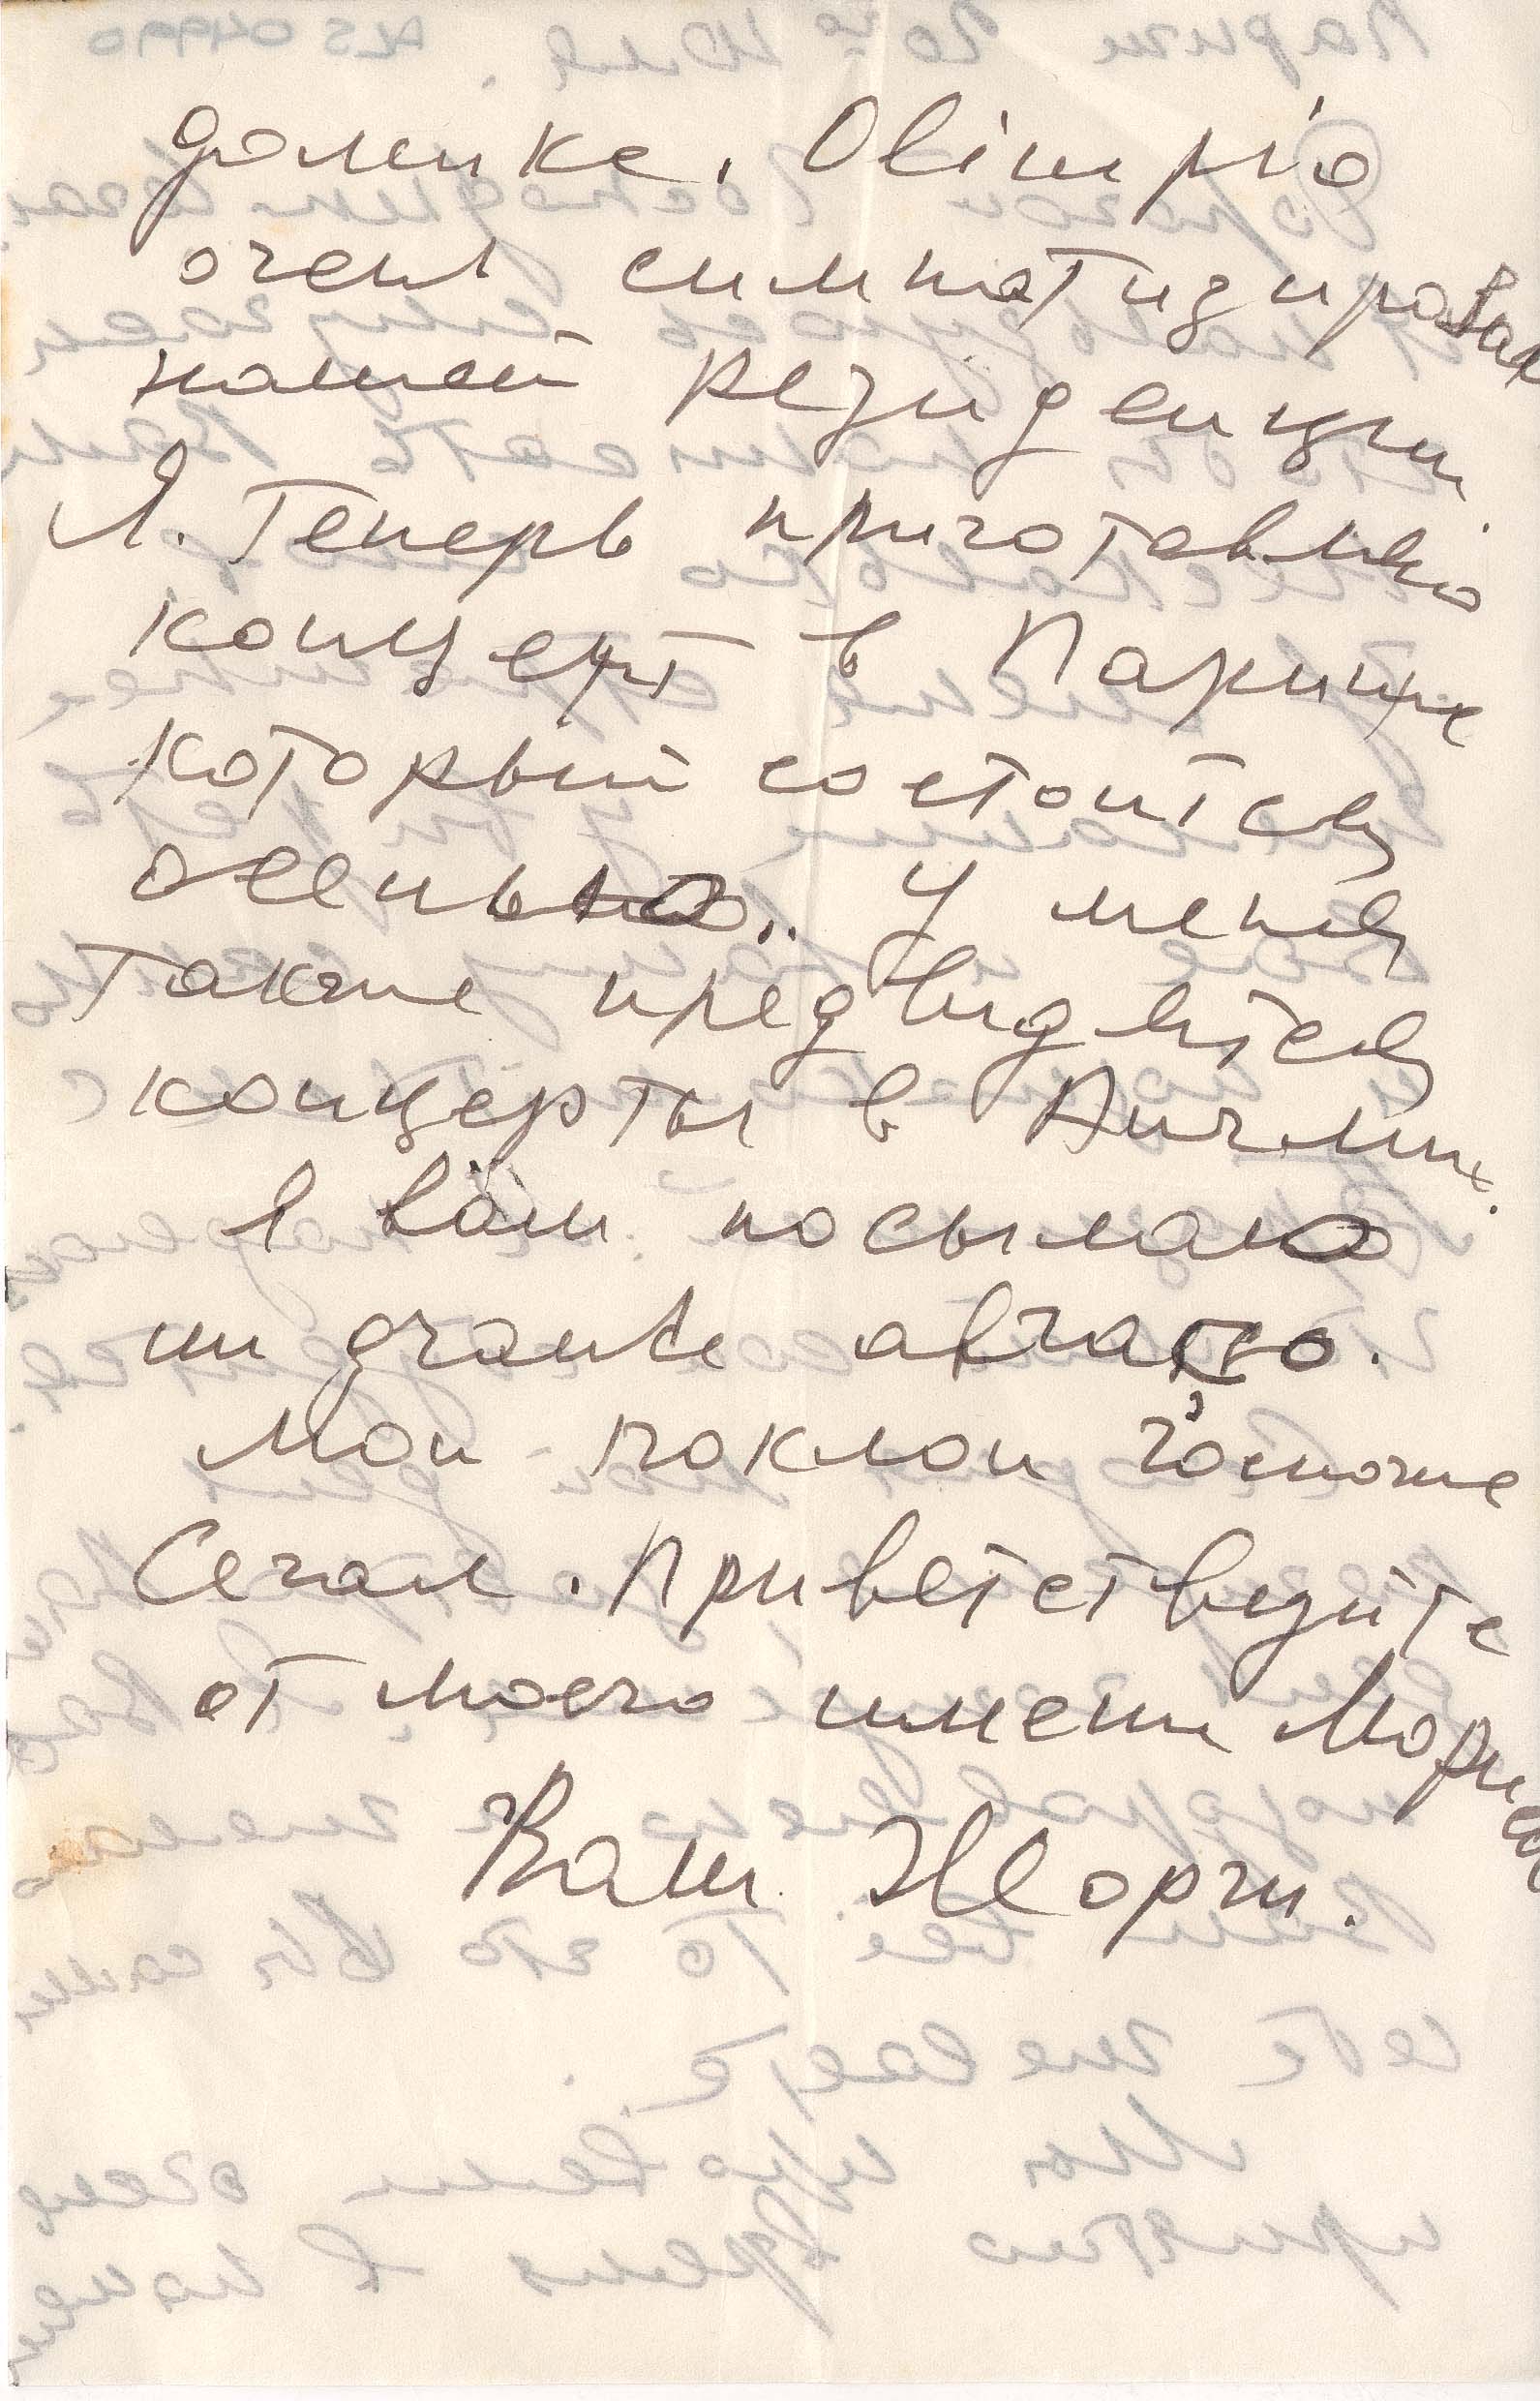 домике. Olimpio
очень симпатизировал
нашей резиденции.
Я. Теперь приготовляю
концерт в Париже
который состоится
осенью.. У меня
также предвидятся
концерты в Англии.
Я вам посылаю
un grande abrazo.
Мой поклон госпоже
Сегал. Приветствуйте
от моего имени
Ваш Жорж.